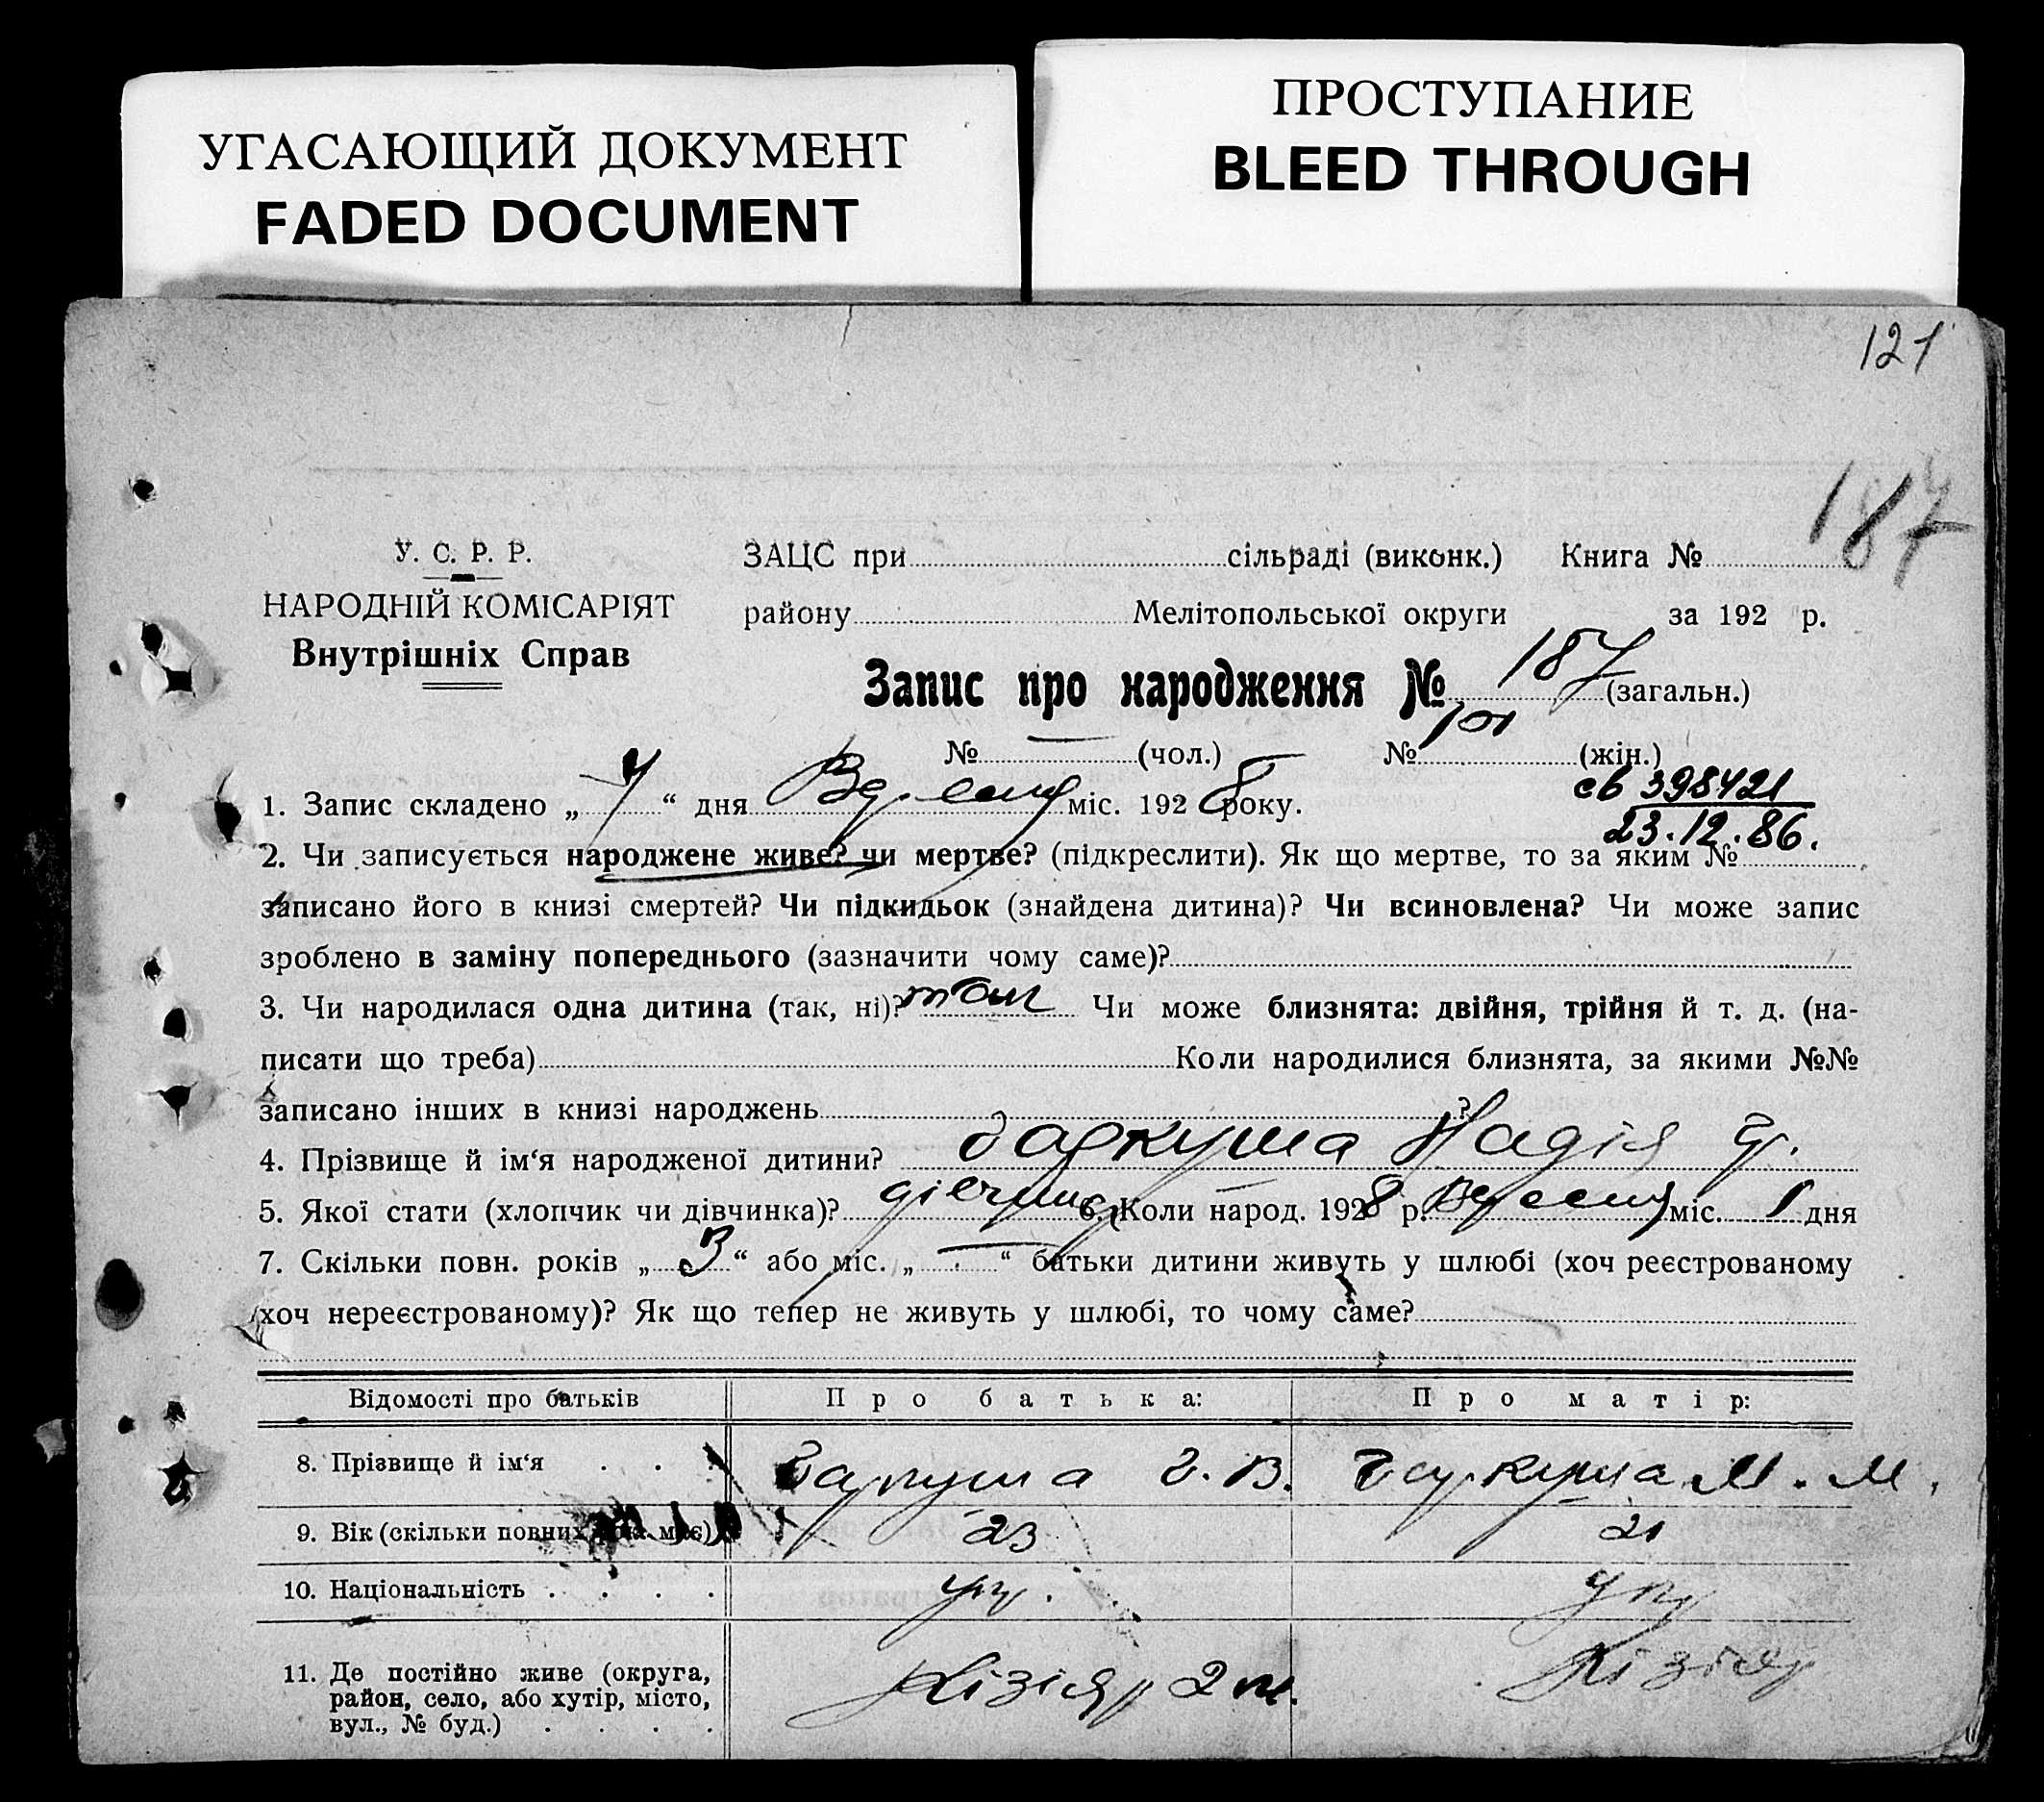 УГАСАЮЩИЙ ДОКУМЕНТ
FADED DOCUMENT
ПРОСТУПАНИЕ
BLEED THROUGH
121
187
У. С. Р. Р.
НАРОДНІЙ КОМІСАРІЯТ
Внутрішніх Справ
ЗАЦС при сільраді (виконк.) Книга №
району Мелітопольської округи за 192 р.
Запис про народження № 187 (загальн.)
№ — (чол.) № 101 (жін.)
св 398421
23.12.86.
1. Запис складено „ 7 “ дня Вересня міс. 1928 року.
2. Чи записується народжене живе? чи мертве? (підкреслити). Як що мертве, то за яким №
записано його в книзі смертей? Чи підкидьок (знайдена дитина)? Чи всиновлена? Чи може запис
зроблено в заміну попереднього (зазначити чому саме)?
3. Чи народилася одна дитина (так, ні)? так Чи може близнята: двійня, трійня й т. д. (на-
писати що треба) Коли народилися близнята, за якими №№
записано інших в книзі народжень ?
4. Прізвище й ім‘я народженої дитини? Надія
5. Якої стати (хлопчик чи дівчинка)? дівчина 6. Коли народ. 1928 р. Вересня міс. 1 дня
7. Скільки повн. років „ 3 “ або міс. „ — “ батьки дитини живуть у шлюбі (хоч реєстрованому
хоч нереєстрованому)? Як що тепер не живуть у шлюбі, то чому саме?
Відомості про батьків Про батька: Про матір:
8. Прізвище й ім‘я М. М.
9. Вік (скільки повних має) 23 21
10. Національність укр. укр
11. Де постійно живе (округа,
район, село, або хутір, місто,
вул., № буд.)
Кізіяр Кізіяр